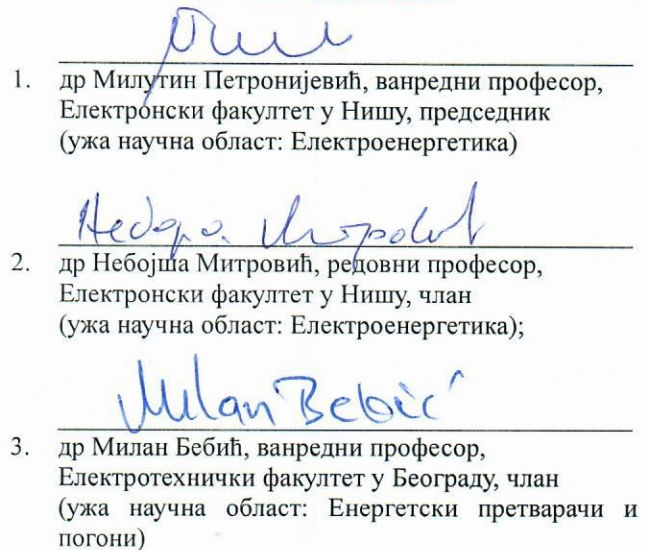 1. др Милутин Петронијевић, ванредни професор,
Електронски факултет у Нишу, председник
(ужа научна област: Електроенергетика)
2. др Небојша Митровић, редовни професор,
Електронски факултет у Нишу, члан
(ужа научна област: Електроенергетика);
Milan Bebić
3. др Милан Бебић, ванредни професор,
Електротехнички факултет у Београду, члан
(ужа научна област: Енергетски претварачи и
погони)